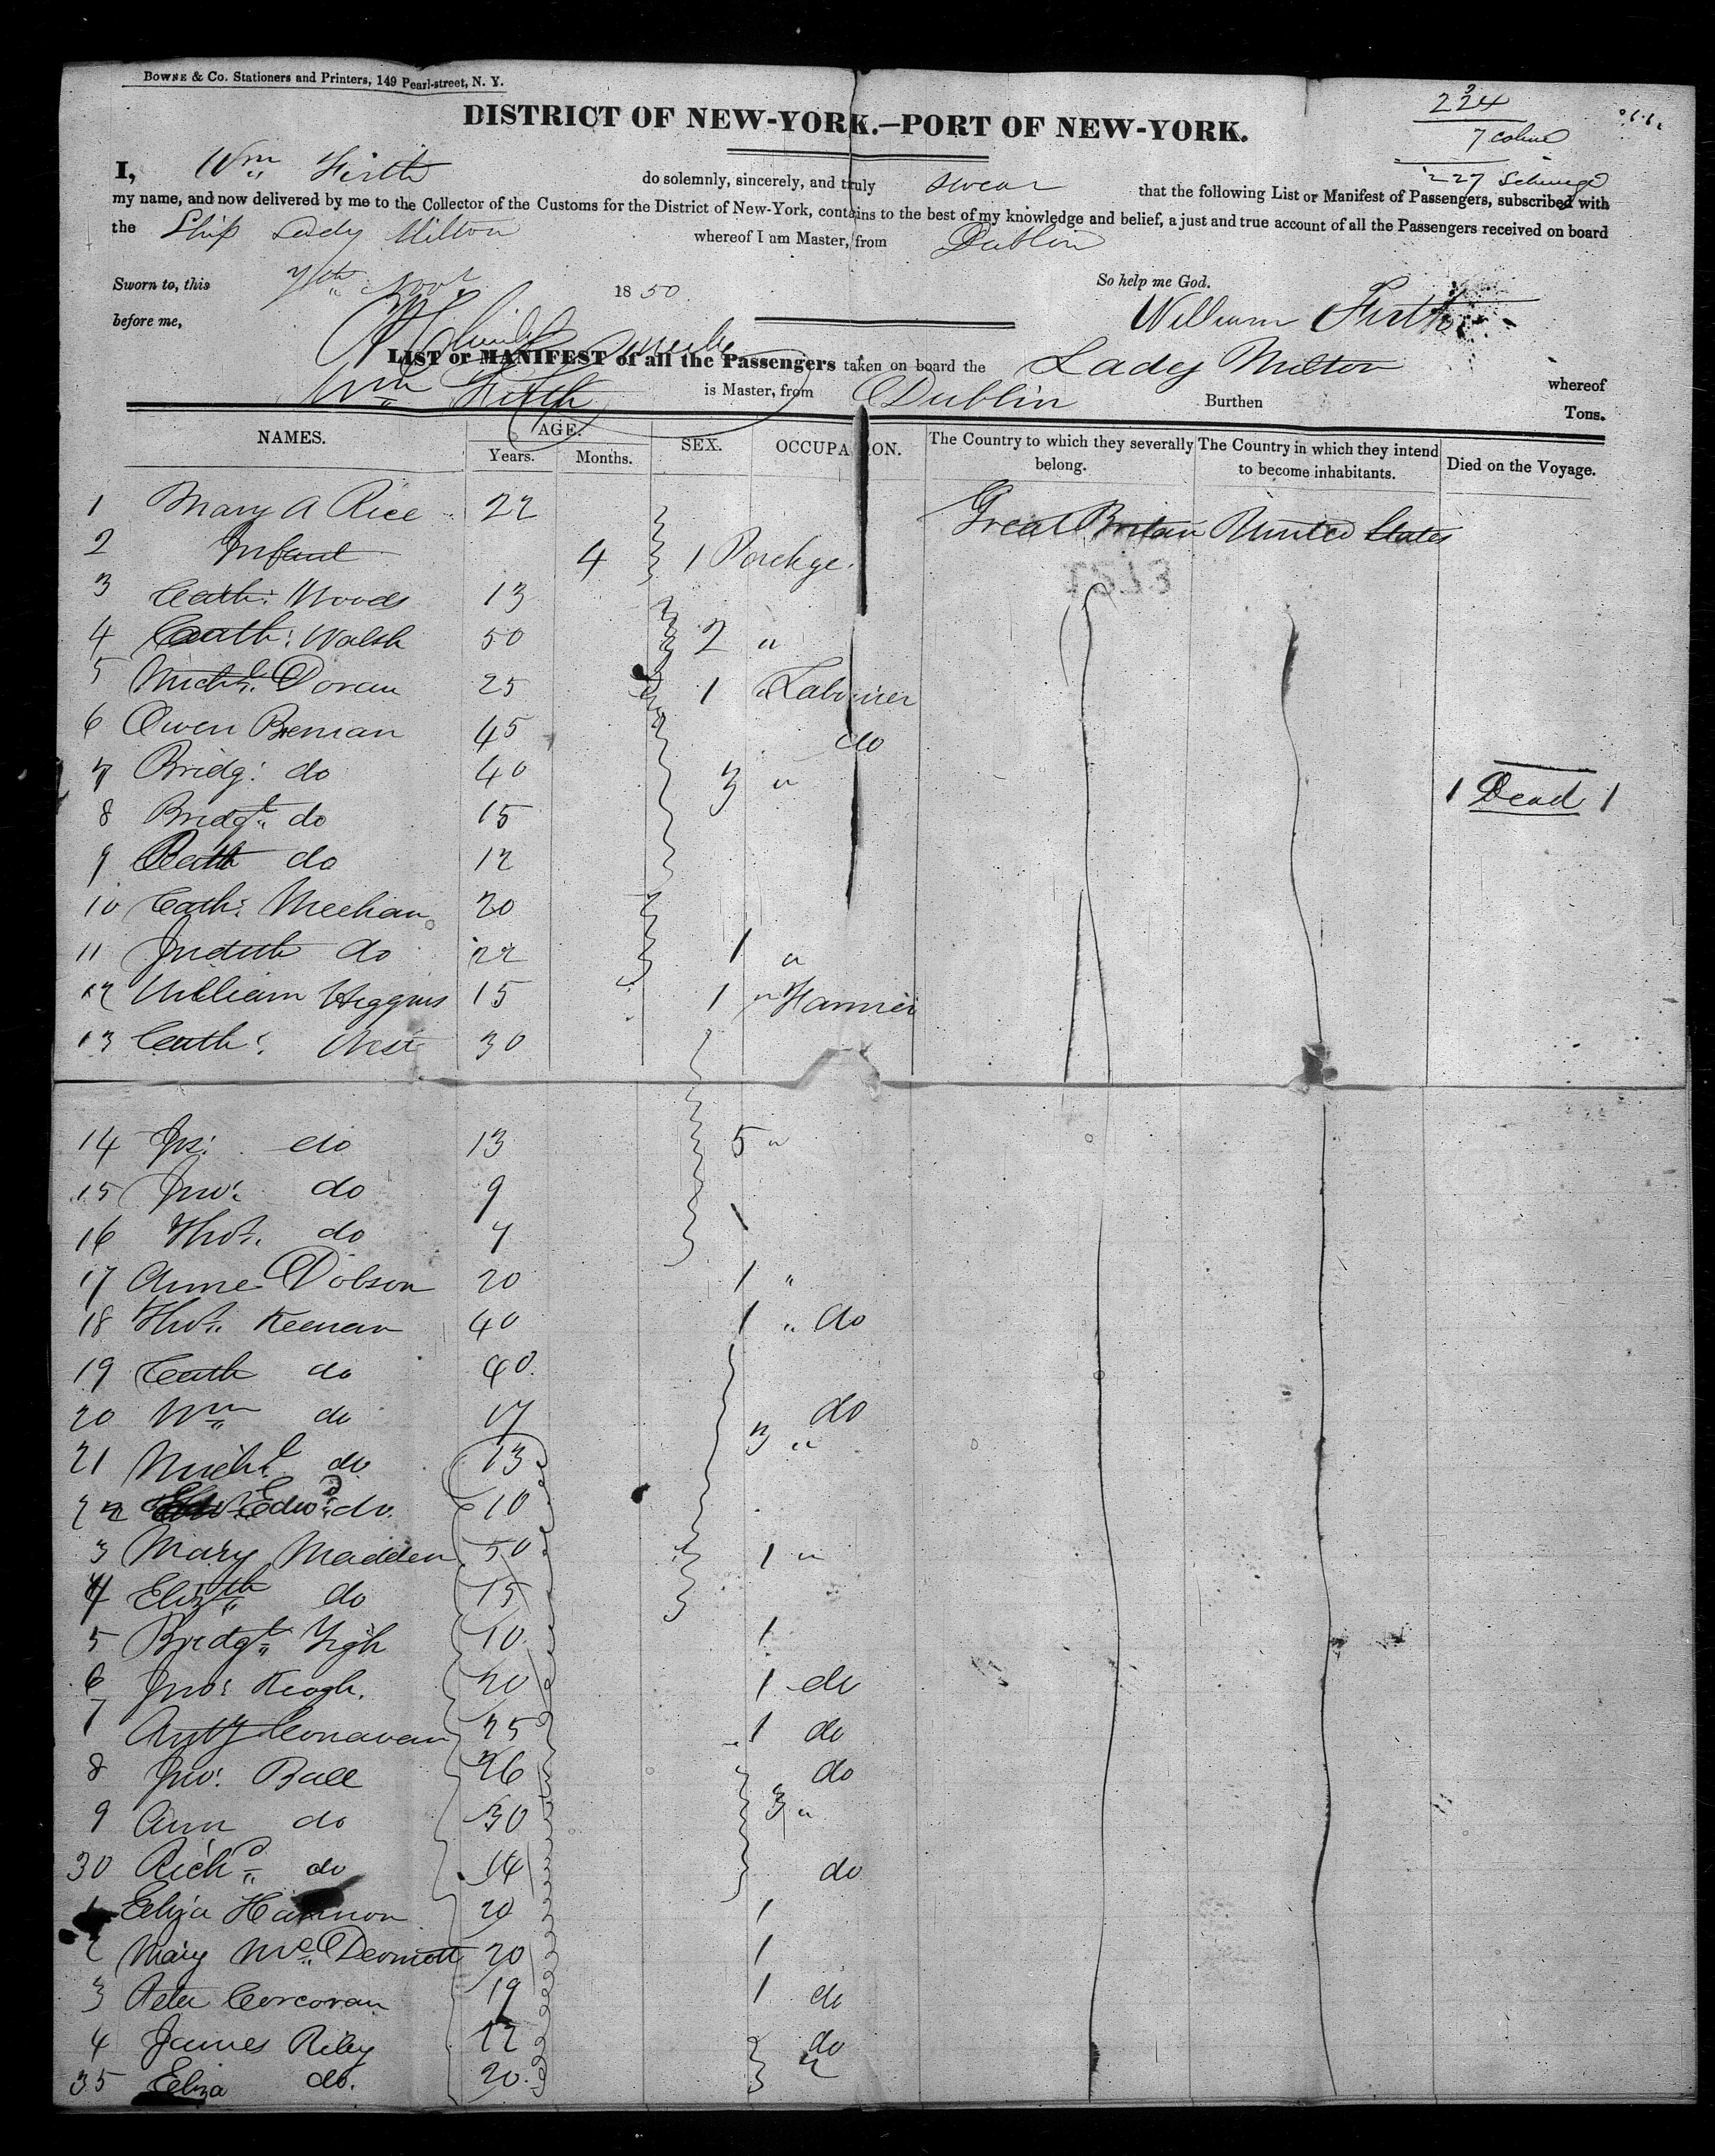 BOWNE & Co. Stationers and Printers, 149 Pearl-street, N. Y.
224
DISTRICT OF NEW-YORK.—PORT OF NEW-YORK.
7
227
I, Wm Firth do solemnly, sincerely, and truly swear that the following List or Manifest of Passengers, subscribed with
my name, and now delivered by me to the Collector of the Customs for the District of New-York, contains to the best of my knowledge and belief, a just and true account of all the Passengers received on board
the Ship Lady Milton whereof I am Master, from Dublin
Sworn to, this 7th Novr 1850. So help me God.
before me, William Firth
LIST or MANIFEST of all the Passengers taken on board the Lady Milton whereof
Wm Firth is Master, from Dublin Burthen Tons.
NAMES. AGE. Years. Months. SEX. OCCUPATION. The Country to which they severally belong. The Country in which they intend to become inhabitants. Died on the Voyage.
1 Mary A Rice 22 Great Britain United States
2 Infant 4 1
3 Cath: Woods 13
4 Cath: Walsh 50 2 "
5 Michl. Doran 25 1 " Labourer
6 Owen Brenan 45 do
7 Bridg: do 40 3 " 1 Dead 1
8 Bridgt. do 15
9 Cath do 12
10 Cath: Meehan 20
11 Judith do 22 1 "
12 William Higgins 15 1 " Farmer
13 Cath: West 30
14 Jas: do 13 5 "
15 Jno: do 9
16 Thos. do 7
17 Anne Dobson 20 1 "
18 Thos. Keenan 40 1 " do
19 Cath do 40.
20 Wm do 17 do
21 Michl. do 13 3 "
22 Edwd: do. 10
3 Mary Madden 50 1 "
4 Elizth do 15
5 Bridgt. 10 1
6 Jno: Keogh. 20 1 do
7 Anty Conavan 25 1 do
8 Jno: Ball 26 do
9 Ann do 30 3 "
30 Richd. do 14 do
1 Eliza Hannon 20 1
2 Mary McDermott 20 1
3 Peter Corcoran 19 1 do
4 James Riley 22 do
35 Eliza do. 20. 2